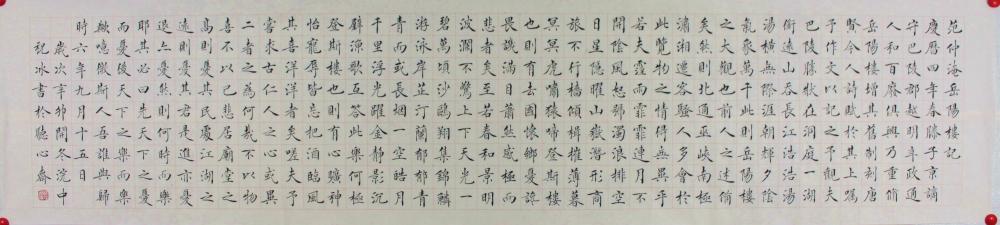 范仲淹岳陽樓記
慶曆四年春滕子京謫
守巴陵郡越明年政通
人和百廢俱興乃重脩
岳陽樓增其舊制刻唐
賢今人詩賦於其上屬
予作文以記之予觀夫
巴陵勝狀在洞庭一湖
銜遠山吞長江浩浩湯
湯橫無際涯朝暉夕陰
氣象萬千此則岳陽樓
之大觀也前人之述備
矣然則北通巫峽南極
瀟湘遷客騷人多會於
此覽物之情得無異乎
若夫霪雨霏霏連月不
開陰風怒號濁浪排空
日星隱曜山嶽潛形商
旅不行檣傾楫摧薄暮
冥冥虎嘯猿啼登斯樓
也則有去國懷鄉憂讒
畏譏滿目蕭然感極而
悲者矣至若春和景明
波瀾不驚上下天光一
碧萬頃沙鷗翔集錦鱗
游泳岸芷汀蘭郁郁青
青而或長煙一空皓月
千里浮光躍金靜影沉
璧漁歌互答此樂何極
登斯樓也則有心曠神
怡寵辱皆忘把酒臨風
其喜洋洋者矣嗟夫予
嘗求古仁人之心或異
二者之為何哉不以物
喜不以己悲居廟堂之
高則憂其民處江湖之
遠則憂其君是進亦憂
退亦憂然則何時而樂
耶其必曰先天下之憂
而憂後天下之樂而樂
歟噫微斯人吾誰與歸
時六年九月十五日
歲次辛卯冬浣中
祝冰書於聽心齋